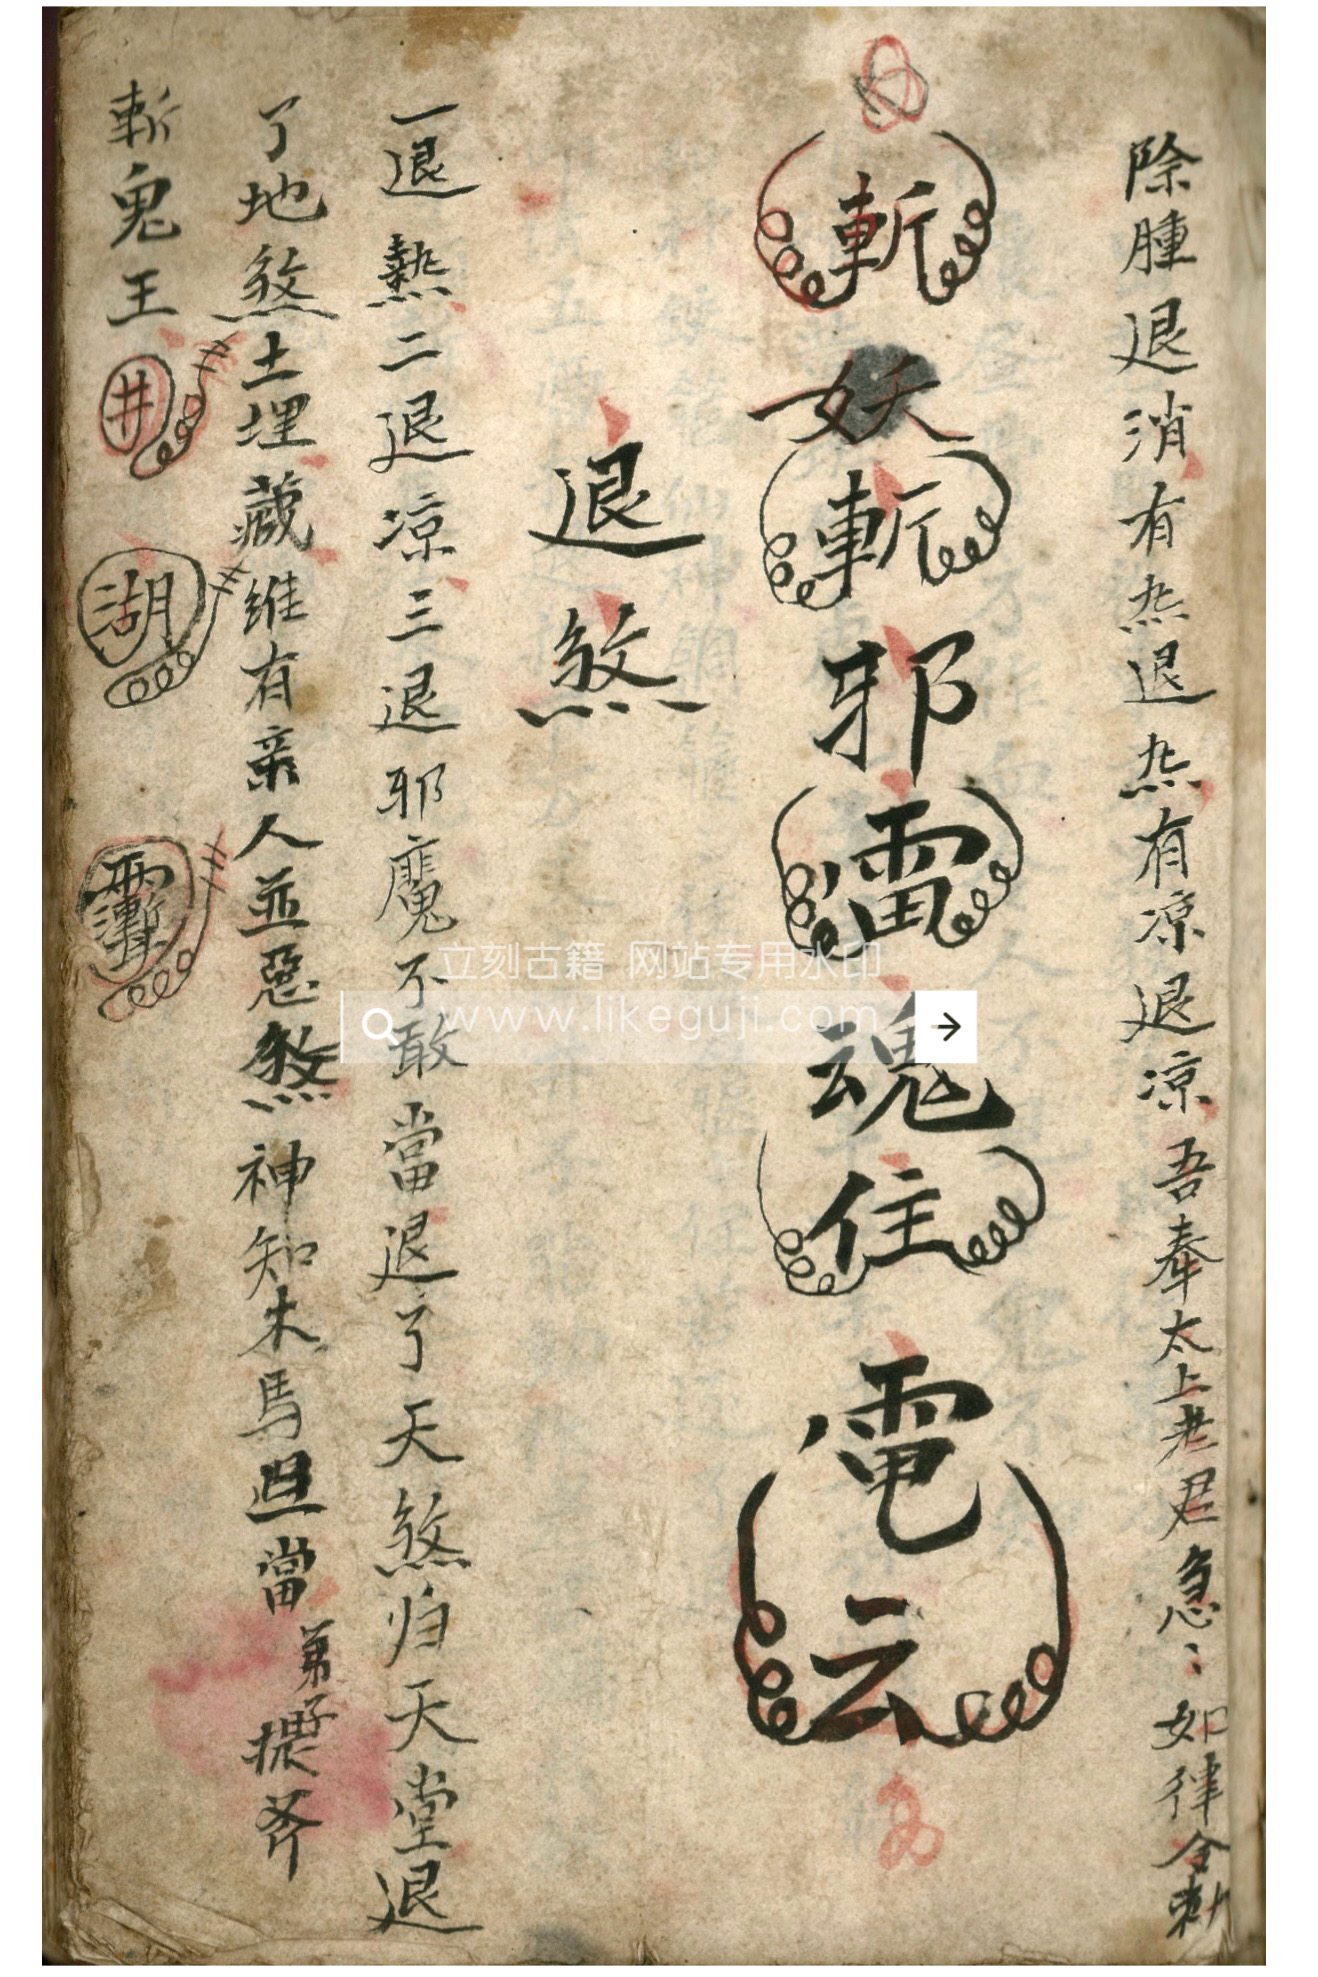 除腫退消有炁退炁有凉退凉吾奉太上老君急:如律令勅
斬妖斬邪雷魂住電云
退煞
一退熱二退凉三退邪魔不敢當退了天煞归天堂退
了地煞土埋藏维有亲人並惡煞神知木馬但當弟子擺斧
斬鬼王井湖
立刻古籍 网站专用水印
www.likeguji.com